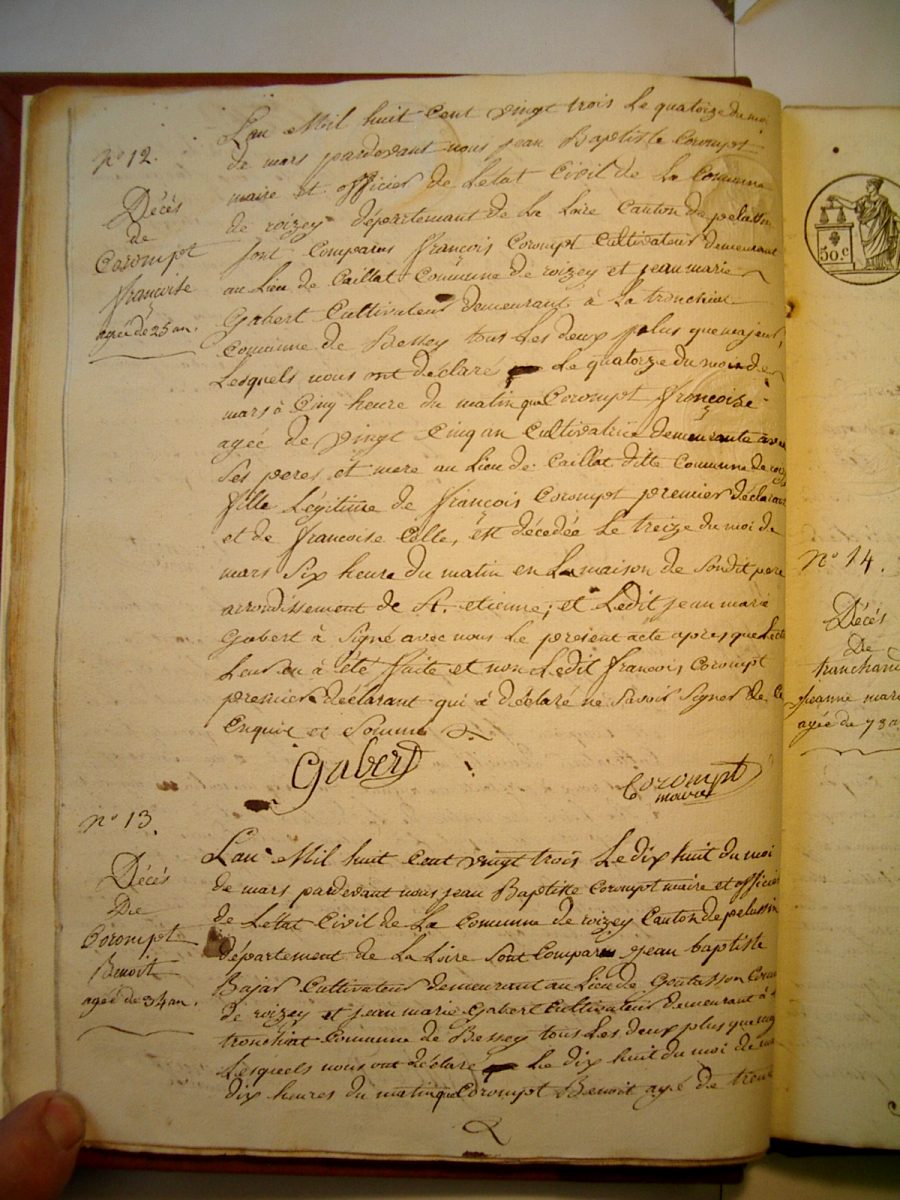 N° 12.
Décès
de
Corompt
françoise
agée de 25 an.
L'an Mil huit Cent vingt trois Le quatorze du moi
de mars pardevant nous jean Baptiste Corompt
maire et officier de Letat Civil de La Commune
de roizey département de La Loire Canton de pelassin
sont Comparus françois Corompt Cultivateur demeurant
au Lieu de Caillat Commune de roizey et jean marie
Gabert Cultivateur demeurant à La tronchiat
Commune de Bessey tous Les deux plus que majeurs
Lesquels nous ont déclaré Le quatorze du moi de
mars à Cinq heure du matin que Corompt françoise
agée de vingt Cinq an Cultivatrice demeurante avec
Ses peres et mere au Lieu de Caillat ditte Commune de
fille Légitime de françois Corompt premier déclarant
et de francoise Celle, est décedée Le treize du moi de
mars Six heure du matin en La maison de Sondit pere
arrondissement de St. etienne; et Ledit jean marie
Gabert à Signé avec nous Le present acte apres que Lecture
Leur en à été faite et non Ledit francois Corompt
premier déclarant qui à déclaré ne Savoir Signer de Ce
Enquit et Sommé
Gabert
Corompt
maire
N° 13.
Décès
De
Corompt
Benoit
agée de 34 an.
L'an Mil huit Cent vingt trois Le dix huit du moi
de mars pardevant nous jean Baptiste Corompt maire et officier
de Lettat Civil de La Commune de roizey Canton de pelassin
département de La Loire Sont Comparu jean baptiste
Bajar Cultivateur demeurant au Lieu de Goutasson
de roizey et jean marie Gabert Cultivateur demeurant à
tronchiat Commune de Bessey tous Les deux plus que
Lesquels nous ont déclaré Le dix huit du moi de
dix heures du matin que Corompt Benoit agé de trente
50 c
N° 14.
Décès
De
tranchand
jeanne marie
agée de 73 an